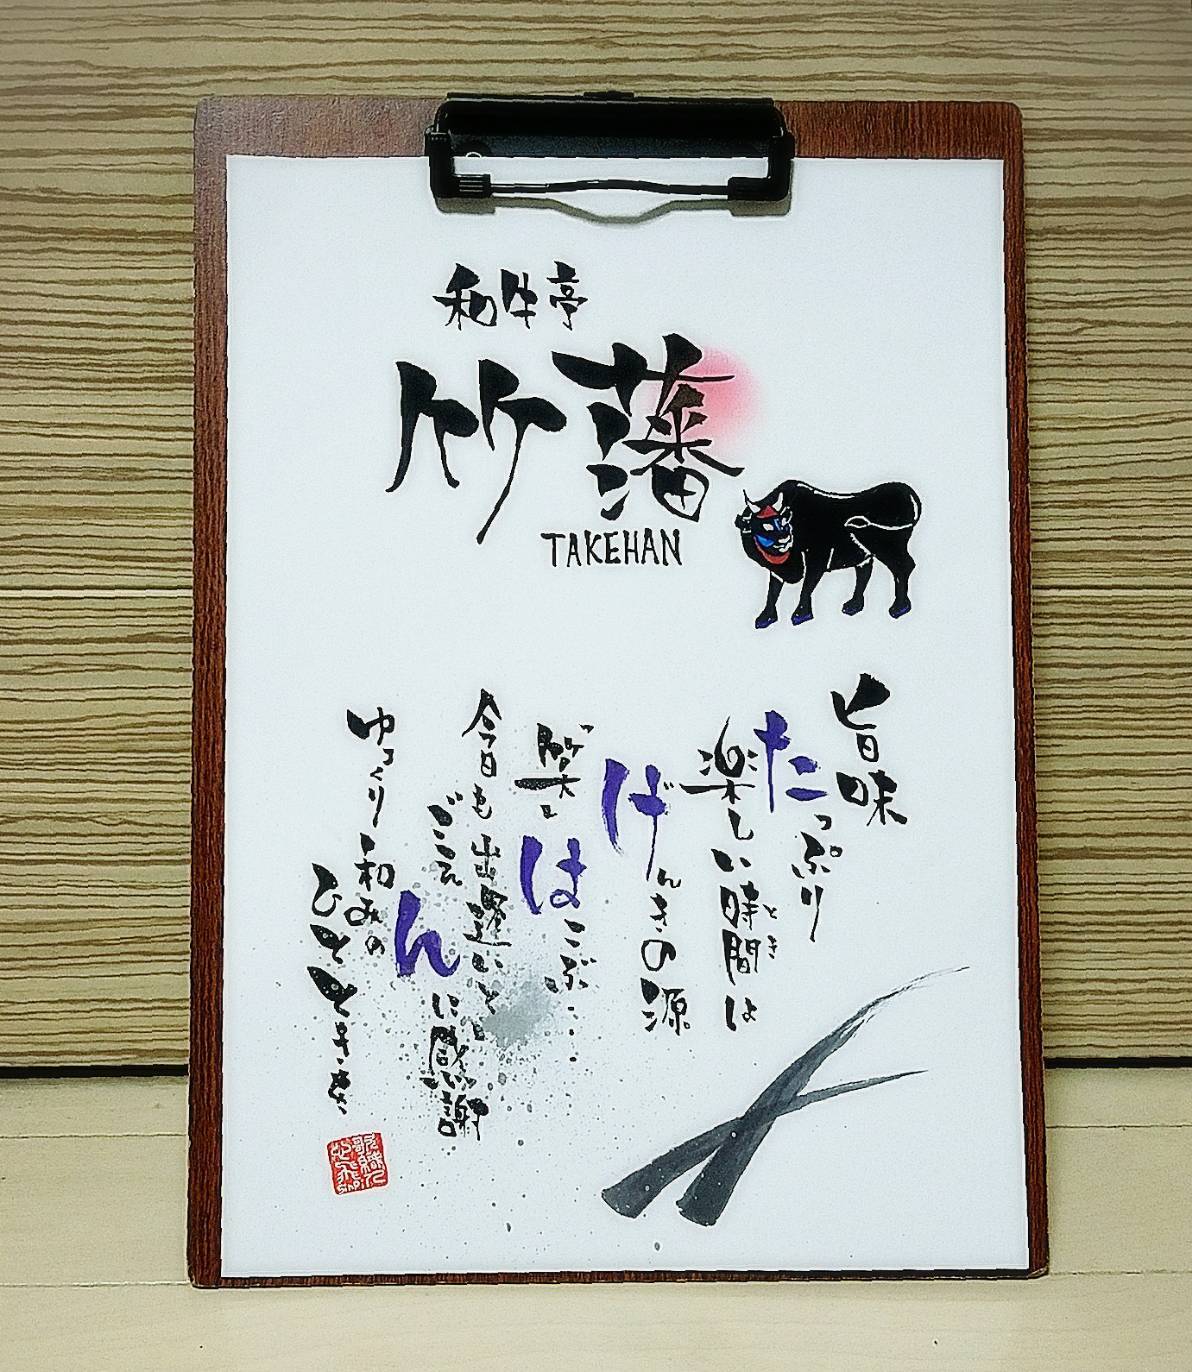 和牛亭
竹藩
TAKEHAN
旨味
たっぷり
楽しい時間は
とき
げんきの源
笑を
はこぶ・・・・
今日も出逢いと
ごえんに感謝
ゆっくり和みの
ひとときを、